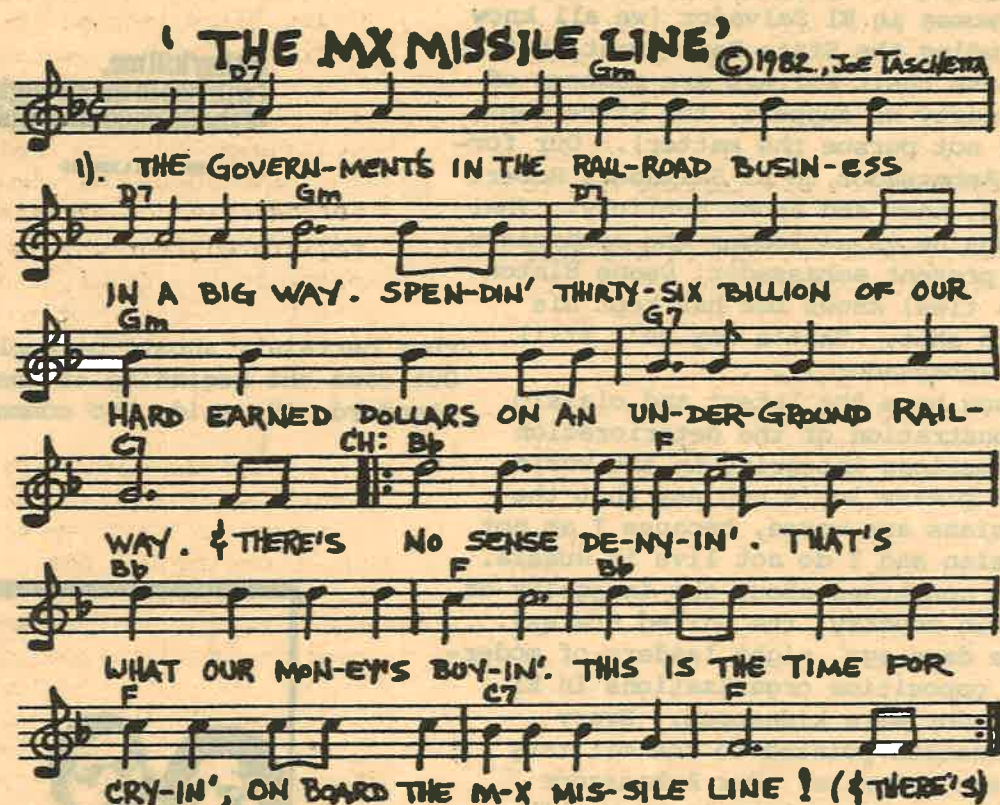 'THE MX MISSILE LINE'
©1982, JOE TASCHETTA
D7 Gm
1). THE GOVERN-MENT'S IN THE RAIL-ROAD BUSIN-ESS
D7 Gm D7
IN A BIG WAY. SPEN-DIN' THIRTY-SIX BILLION OF OUR
Gm G7
HARD EARNED DOLLARS ON AN UN-DER-GROUND RAIL-
C7 CH: Bb F
WAY. & THERE'S NO SENSE DE-NY-IN'. THAT'S
Bb F Bb
WHAT OUR MON-EY'S BUY-IN'. THIS IS THE TIME FOR
F C7 F
CRY-IN', ON BOARD THE M-X MIS-SILE LINE! (& THERE'S)